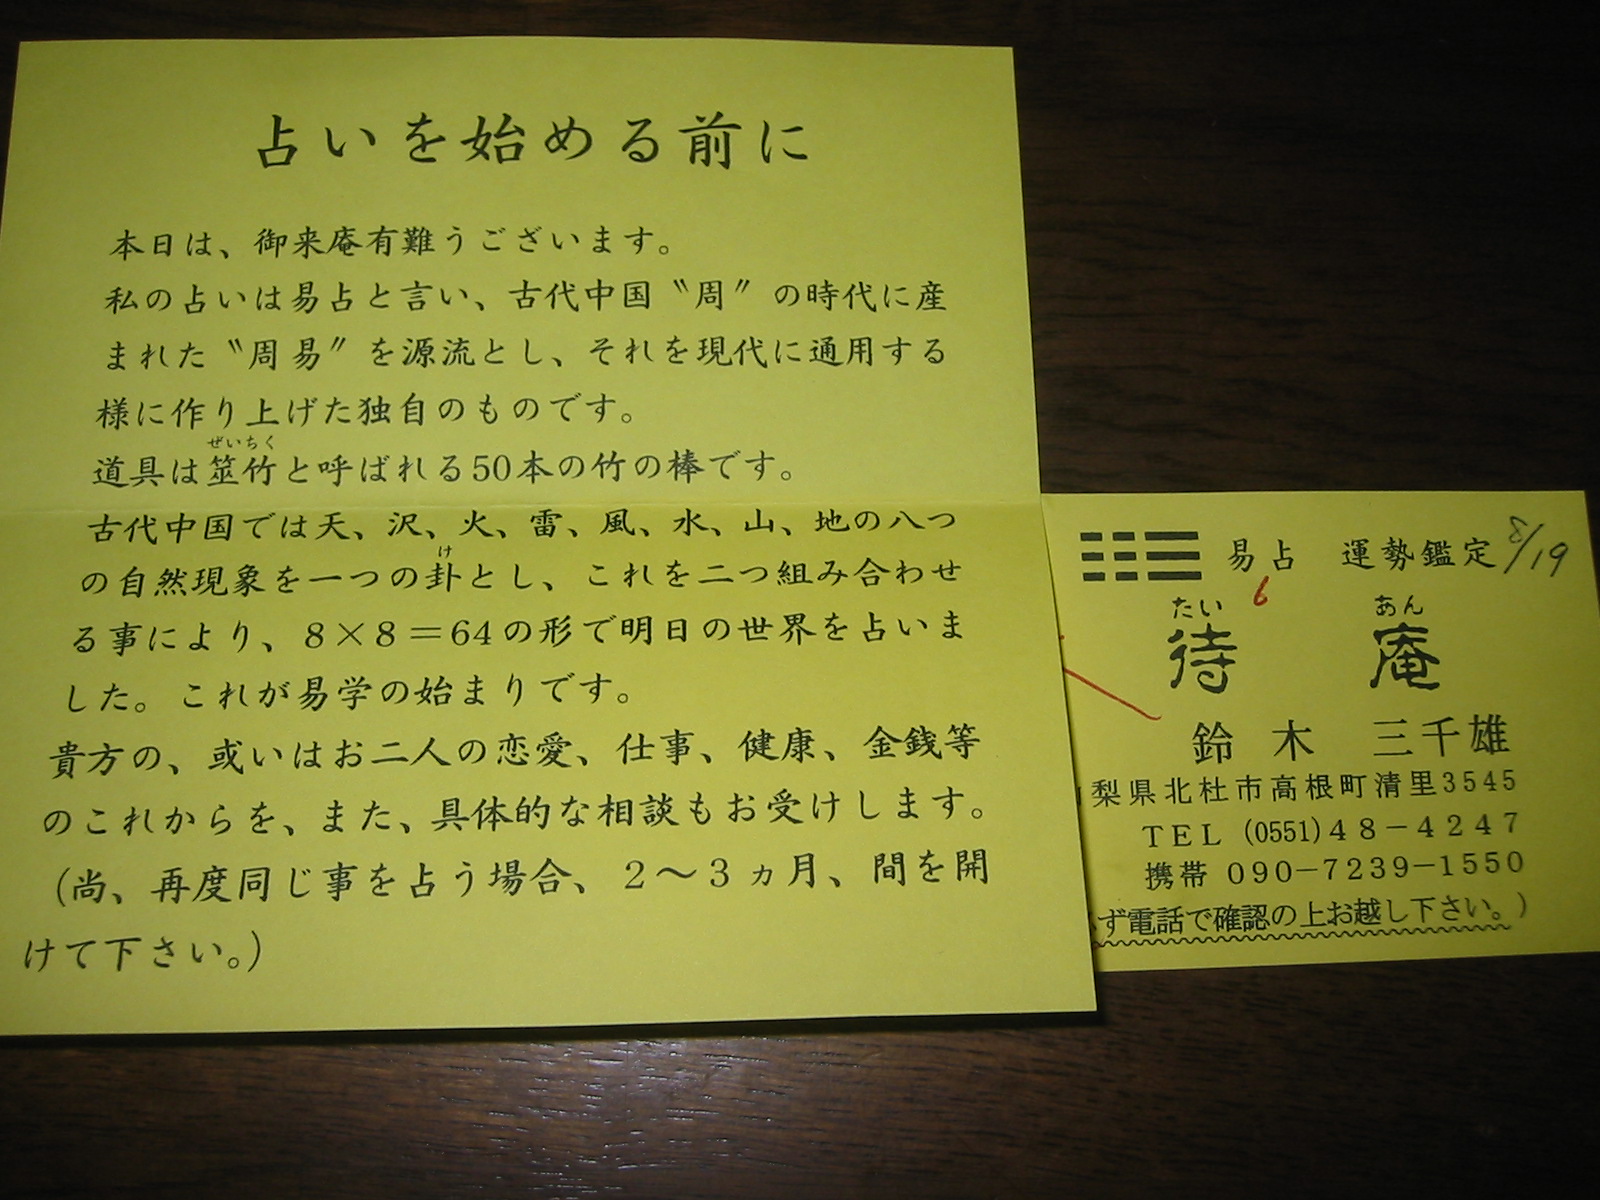 占いを始める前に
本日は、御来庵有難うございます。
私の占いは易占と言い、古代中国〝周〟の時代に産
まれた〝周易〟を源流とし、それを現代に通用する
様に作り上げた独自のものです。
ぜいちく
道具は筮竹と呼ばれる50本の竹の棒です。
古代中国では天、沢、火、雷、風、水、山、地の八つ
け
の自然現象を一つの卦とし、これを二つ組み合わせ
る事により、8×8=64の形で明日の世界を占いま
した。これが易学の始まりです。
貴方の、或いはお二人の恋愛、仕事、健康、金銭等
のこれからを、また、具体的な相談もお受けします。
(尚、再度同じ事を占う場合、2〜3ヵ月、間を開
けて下さい。)
易占 運勢鑑定 8/19
6
たい あん
待庵
鈴木 三千雄
梨県北杜市高根町清里3545
TEL (0551)48-4247
携帯 090-7239-1550
ず電話で確認の上お越し下さい。)